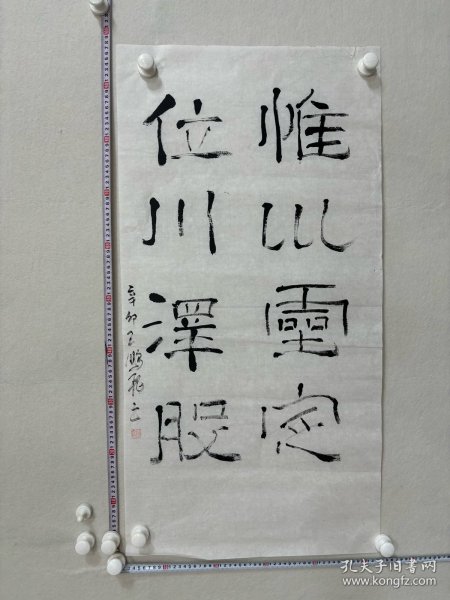 惟巛靈定
位川澤股
辛卯
孔夫子旧书网
www.kongfz.com